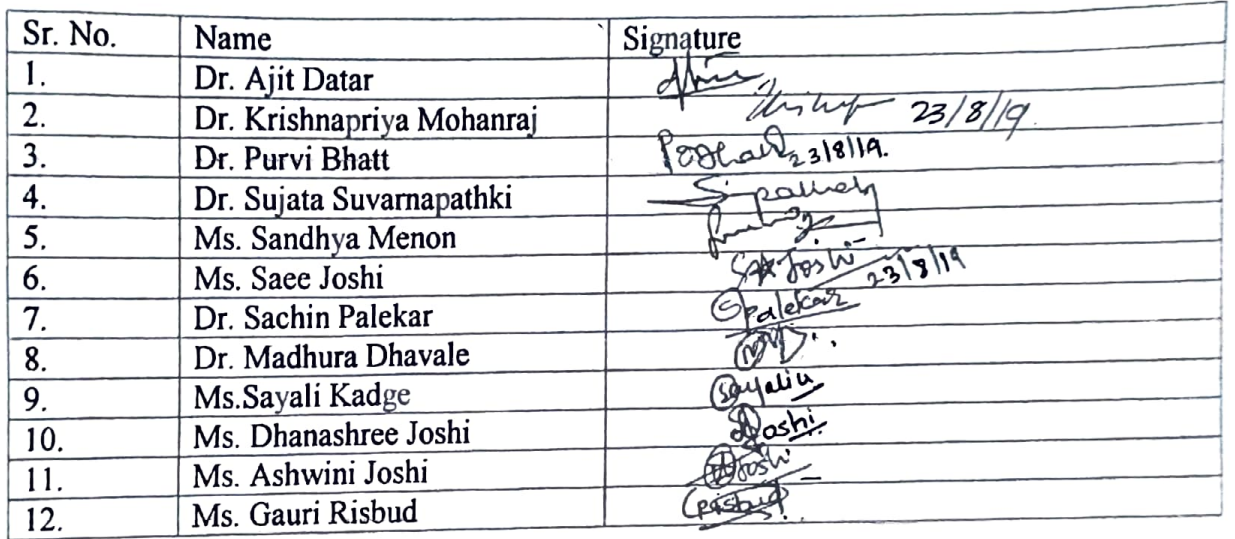 Sr. No. Name Signature
1. Dr. Ajit Datar
2. Dr. Krishnapriya Mohanraj 23/8/19
3. Dr. Purvi Bhatt 23/8/19.
4. Dr. Sujata Suvarnapathki
5. Ms. Sandhya Menon
6. Ms. Saee Joshi Joshi
7. Dr. Sachin Palekar SPalekar 23/8/19
8. Dr. Madhura Dhavale
9. Ms.Sayali Kadge Sayali
10. Ms. Dhanashree Joshi DJoshi
11. Ms. Ashwini Joshi AJoshi
12. Ms. Gauri Risbud GRisbud